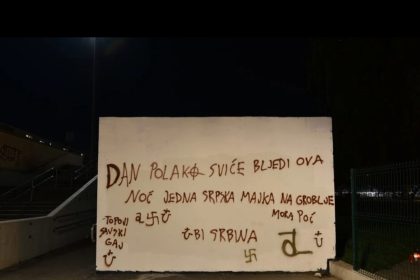 DAN POLAKO SVIĆE BLJEDI OVA
NOĆ JEDNA SRPSKA MAJKA NA GROBLJE
MORA POĆ
TOPOVI
SAVSKI
GAJ
UBI SRBINA